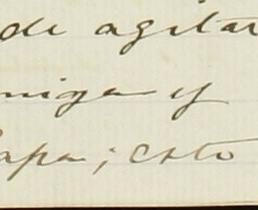 de agitar
miga y
apa; esto